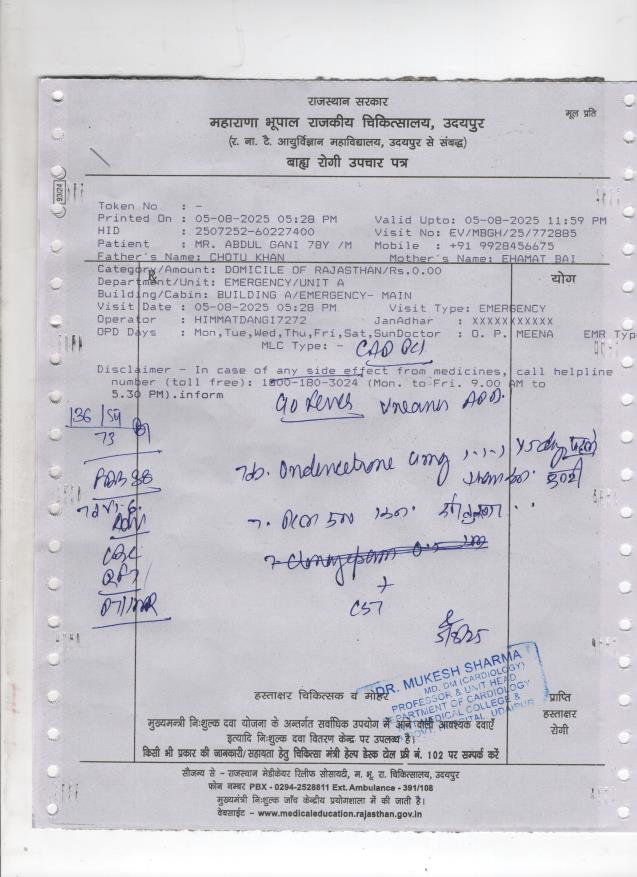 राजस्थान सरकार
मूल प्रति
महाराणा भूपाल राजकीय चिकित्सालय, उदयपुर
(र. ना. टै. आयुर्विज्ञान महाविद्यालय, उदयपुर से संबद्ध)
बाह्य रोगी उपचार पत्र
93/24
Token No. : -
Printed On : 05-08-2025 05:28 PM Valid Upto: 05-08-2025 11:59 PM
HID : 2507252-60227400 Visit No: EV/MBGH/25/772885
Patient : MR. ABDUL GANI 78Y /M Mobile : +91 9928456675
Father's Name: CHOTU KHAN Mother's Name: EHAMAT BAI
Category/Amount: DOMICILE OF RAJASTHAN/Rs.0.00
योग
Department/Unit: EMERGENCY/UNIT A
Building/Cabin: BUILDING A/EMERGENCY- MAIN
Visit Date : 05-08-2025 05:28 PM Visit Type: EMERGENCY
Operator : HIMMATDANGI7272 JanAadhar : XXXXXXXXXXX
OPD Days : Mon,Tue,Wed,Thu,Fri,Sat,SunDoctor : O. P. MEENA EMR Typ
MLC Type: -
CAD PCI
Disclaimer - In case of any side effect from medicines, call helpline
number (toll free): 1800-180-3024 (Mon. to Fri. 9.00 AM to
5.30 PM).inform
136/54
73
CBC
RFT
PT/INR
+
CST
5/8/25
DR. MUKESH SHARMA
MD, DM (CARDIOLOGY)
PROFESSOR & UNIT HEAD
DEPARTMENT OF CARDIOLOGY
MEDICAL COLLEGE &
GOVT. HOSPITAL, UDAIPUR
हस्ताक्षर चिकित्सक व मोहर
प्राप्ति
हस्ताक्षर
रोगी
मुख्यमन्त्री निःशुल्क दवा योजना के अन्तर्गत सर्वाधिक उपयोग में आने वाली आवश्यक दवाएँ
इत्यादि निःशुल्क दवा वितरण केन्द्र पर उपलब्ध है।
किसी भी प्रकार की जानकारी/सहायता हेतु चिकित्सा मंत्री हेल्प डेस्क टोल फ्री नं. 102 पर सम्पर्क करें
सौजन्य से - राजस्थान मेडीकेयर रिलीफ सोसायटी, म. भू. रा. चिकित्सालय, उदयपुर
फोन नम्बर PBX - 0294-2528811 Ext. Ambulance - 391/108
मुख्यमन्त्री निःशुल्क जाँच केन्द्रीय प्रयोगशाला में की जाती है।
वेबसाईट - www.medicaleducation.rajasthan.gov.in